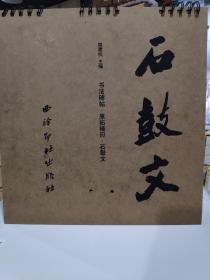 石鼓文
主编
书法碑帖 原拓精印·石鼓文
西泠印社出版社